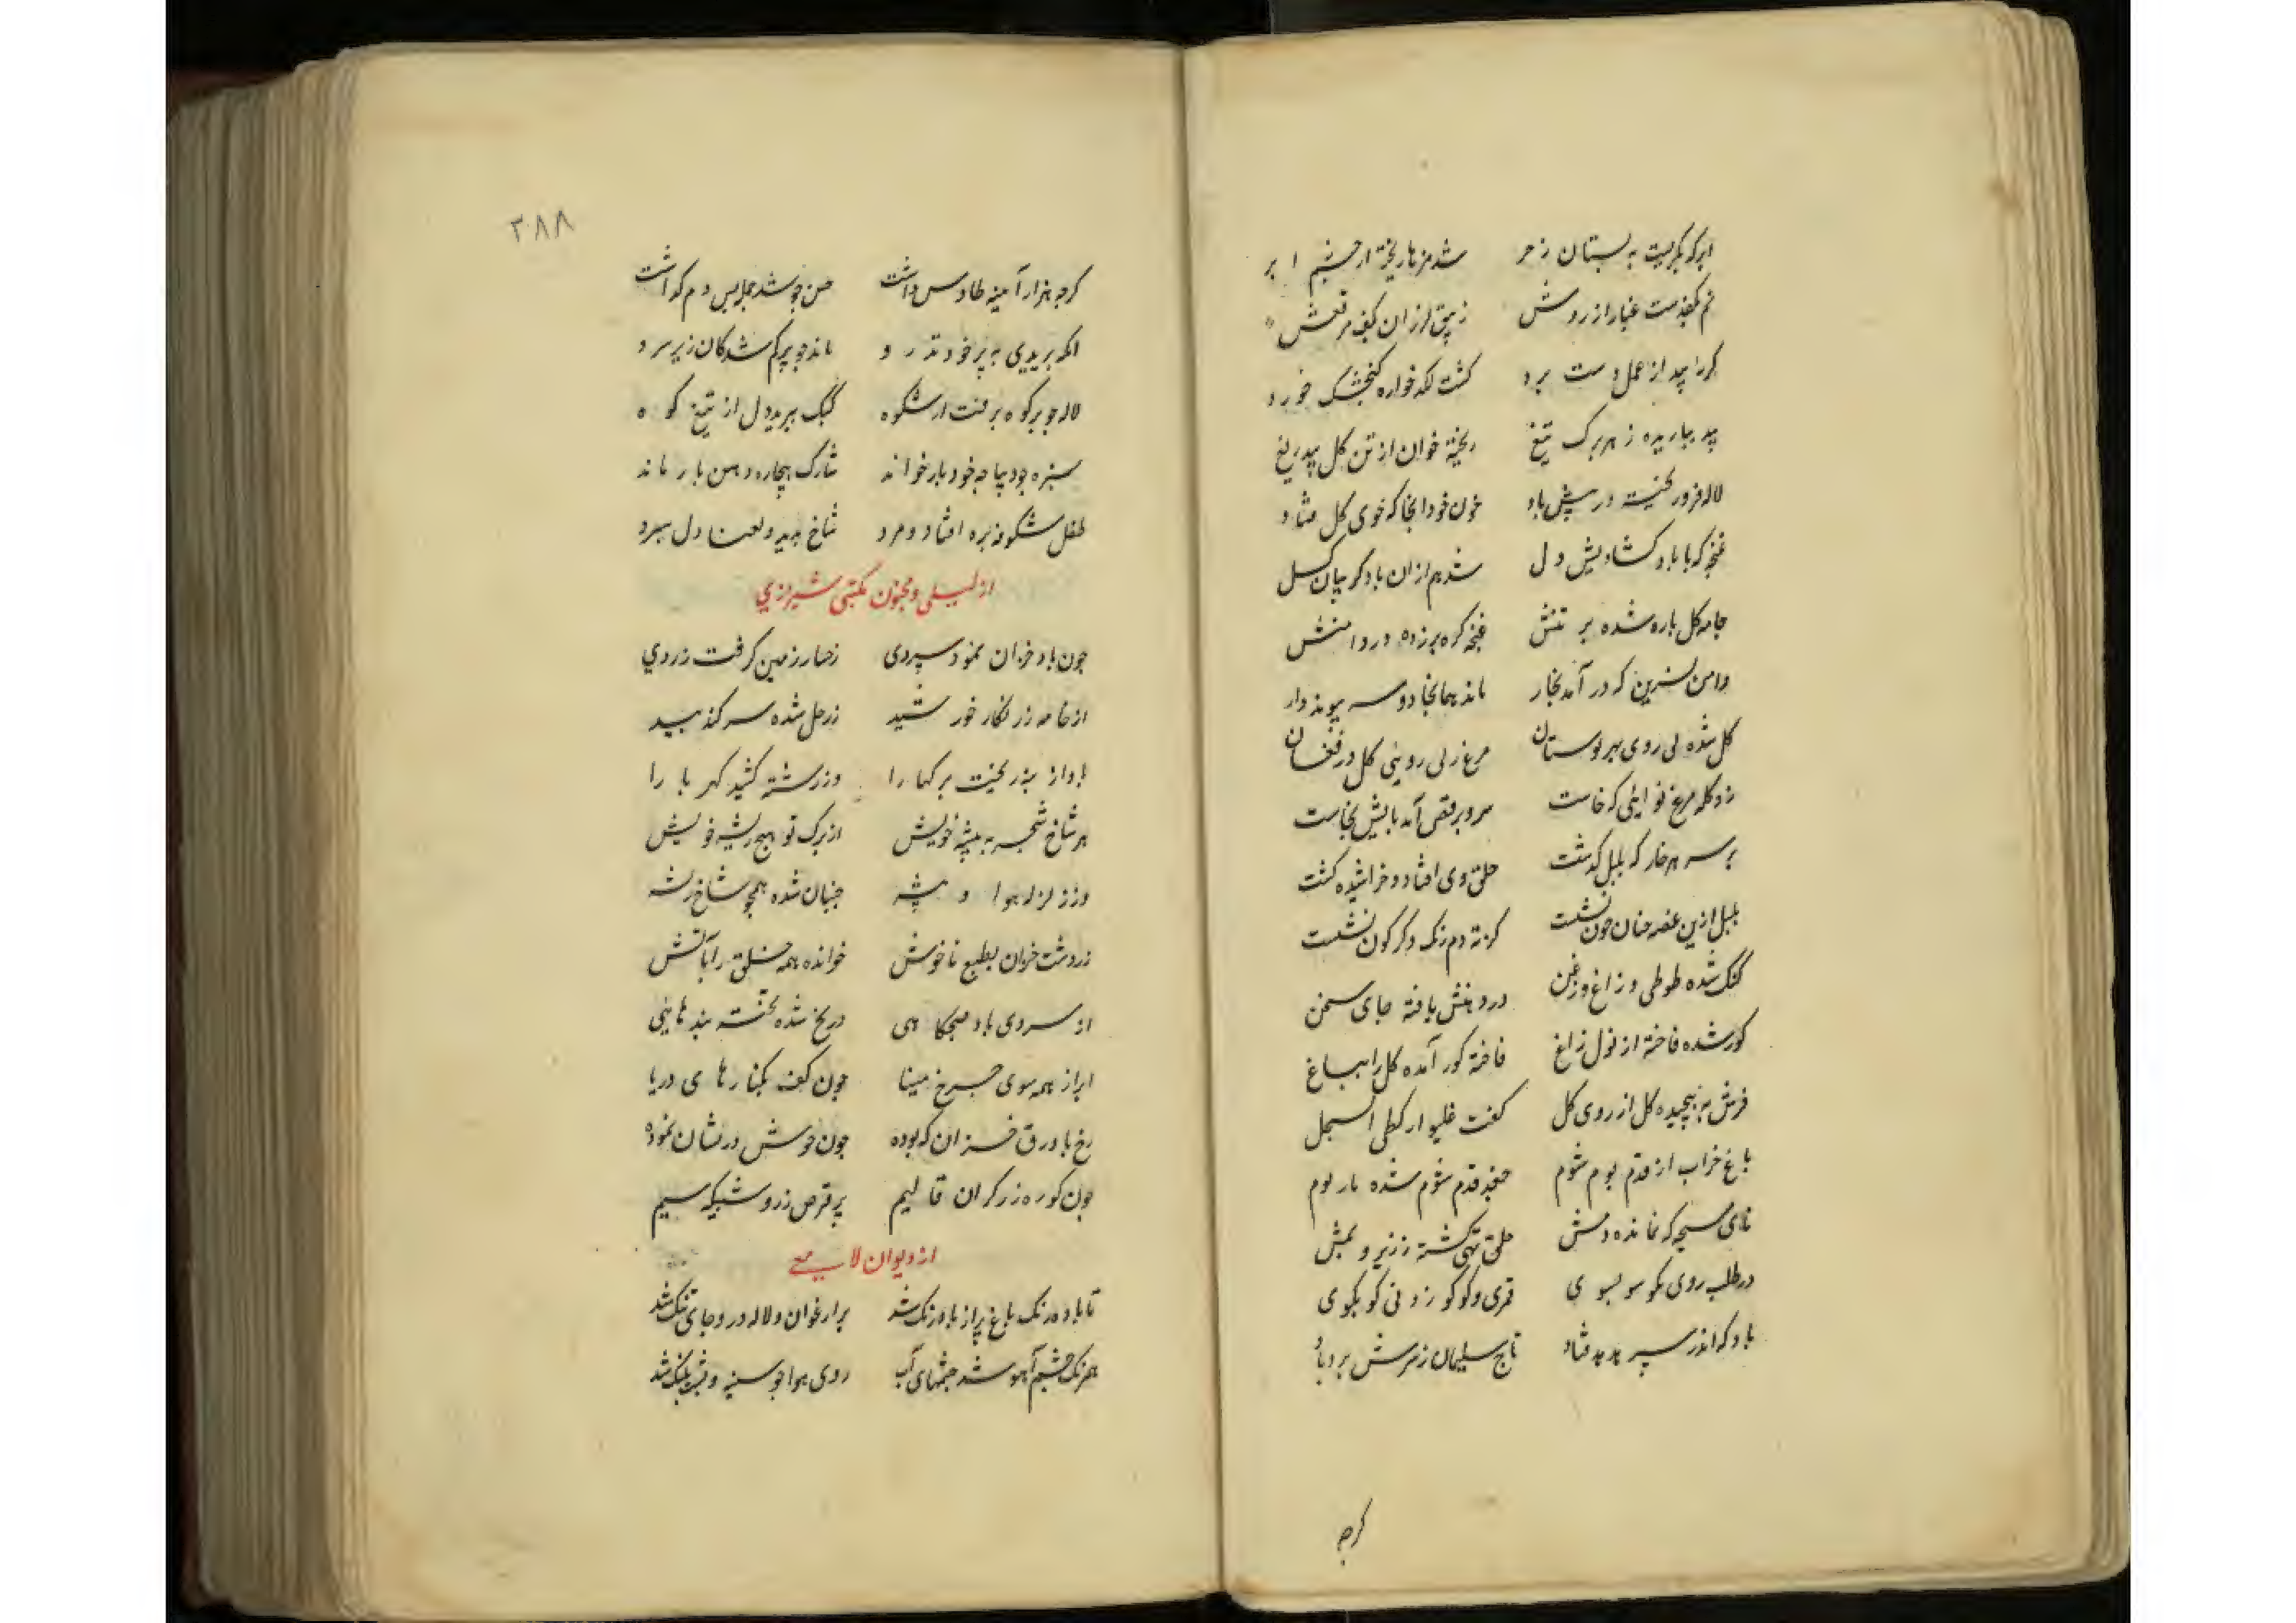 ابر که بگریست به بستان ز حر شد مژها ریخته از چشم ابر
غبار از روش زیبق لرزان کف مرتعش
از عمل دست برد کشت لکد خواره کنجشک خورد
بید بباریده ز هر برک تیغ ریخته خوان از تن کل بیدریغ
لاله فرو ریخت در پیش باد خون خود انجا که خوی کل فتاد
غنچه که با باد کشادیش دل شد هم از ان باد کریبان کسل
جامه کل پاره شده بر تنش غنچه کره بر زده در دامنش
دامن نسرین که در آمد بخار ماند بهمانجا دو سه پیوند دار
کل شده بی روی بهر بوستان مرغ ز بی رویئ کل در فغان
زد کله مرغ نوایی که خاست سرو برقص آمد پایش بخاست
بر سر هر خار که بلبل کذشت حلق وی افتاد و خراشیده کشت
بلبل ازین غصه چنان خون نشست کز ته دم رنک دکر کون نشست
کنک شده طوطی و زاغ و زغن در دهنش یافته جای سخن
کور شده فاخته از نول زاغ فاخته کور آمده کل را بباغ
فرش به پیچیده کل از روی کل کفت غلیواز کطی السجل
باغ خراب از قدم بوم شوم جغد قدم شوم شده یار بوم
نای مسیحه که نمانده دمش حلق تهی کشته ز زیر و بمش
در طلب روی نکو سو بسوی قمری و کوکو زدنی کو بکوی
باد که اندر سر هدهد فتاد تاج سلیمان ز سرش برد باد
کرچه
۳۸۸
کرچه هزار آینه طاوس داشت حسن چو شد جمله پس دم کذاشت
انکه پریدی به پر خود تذرو ماند چو پر کم شدکان زیر سرو
لاله چو بر کوه برفت از شکوه کبک ببرید دل از تیغ کوه
سبزه چو دیباجه خود بار خواند شارک بیچاره دهن باز ماند
طفل شکوفه بره افتاد و مرد شاخ دل سپرد
از لیلی و مجنون مکتبی شیرازی
چون باد خزان نمود سردی رخسار زمین کرفت زردی
از خامه زر نکار خورشید زر حل شده سر کذ بید
باد از ریخت برکها را وز رشته کشید کهربا را
هر شاخ شجر به بیشه خویش از برک تو هیچ ریشه خویش
وز زلزله هوا و بیشه جنبان شده همچو شاخ ریشه
زردشت خزان بطبع ناخوش خوانده همه خلق را بآتش
از سردی باد صبحکاهی در یخ شده تخته بند ماهی
ابر از همه سوی چرخ مینا چون کف بکنارهای دریا
رخ با ورق خزان که بوده چون خوش درنشان نموده
چون کوره زرکران قالیم پر قرص زر و شبیکه سیم
از دیوان لامعی
تا باد مه رنک باغ پر از باد رنک شد بر ارغوان و لاله در و جای تنک شد
همرنک چشم آهو شد چشمهای آب روی هوا چو سینه و پشت پلنک شد